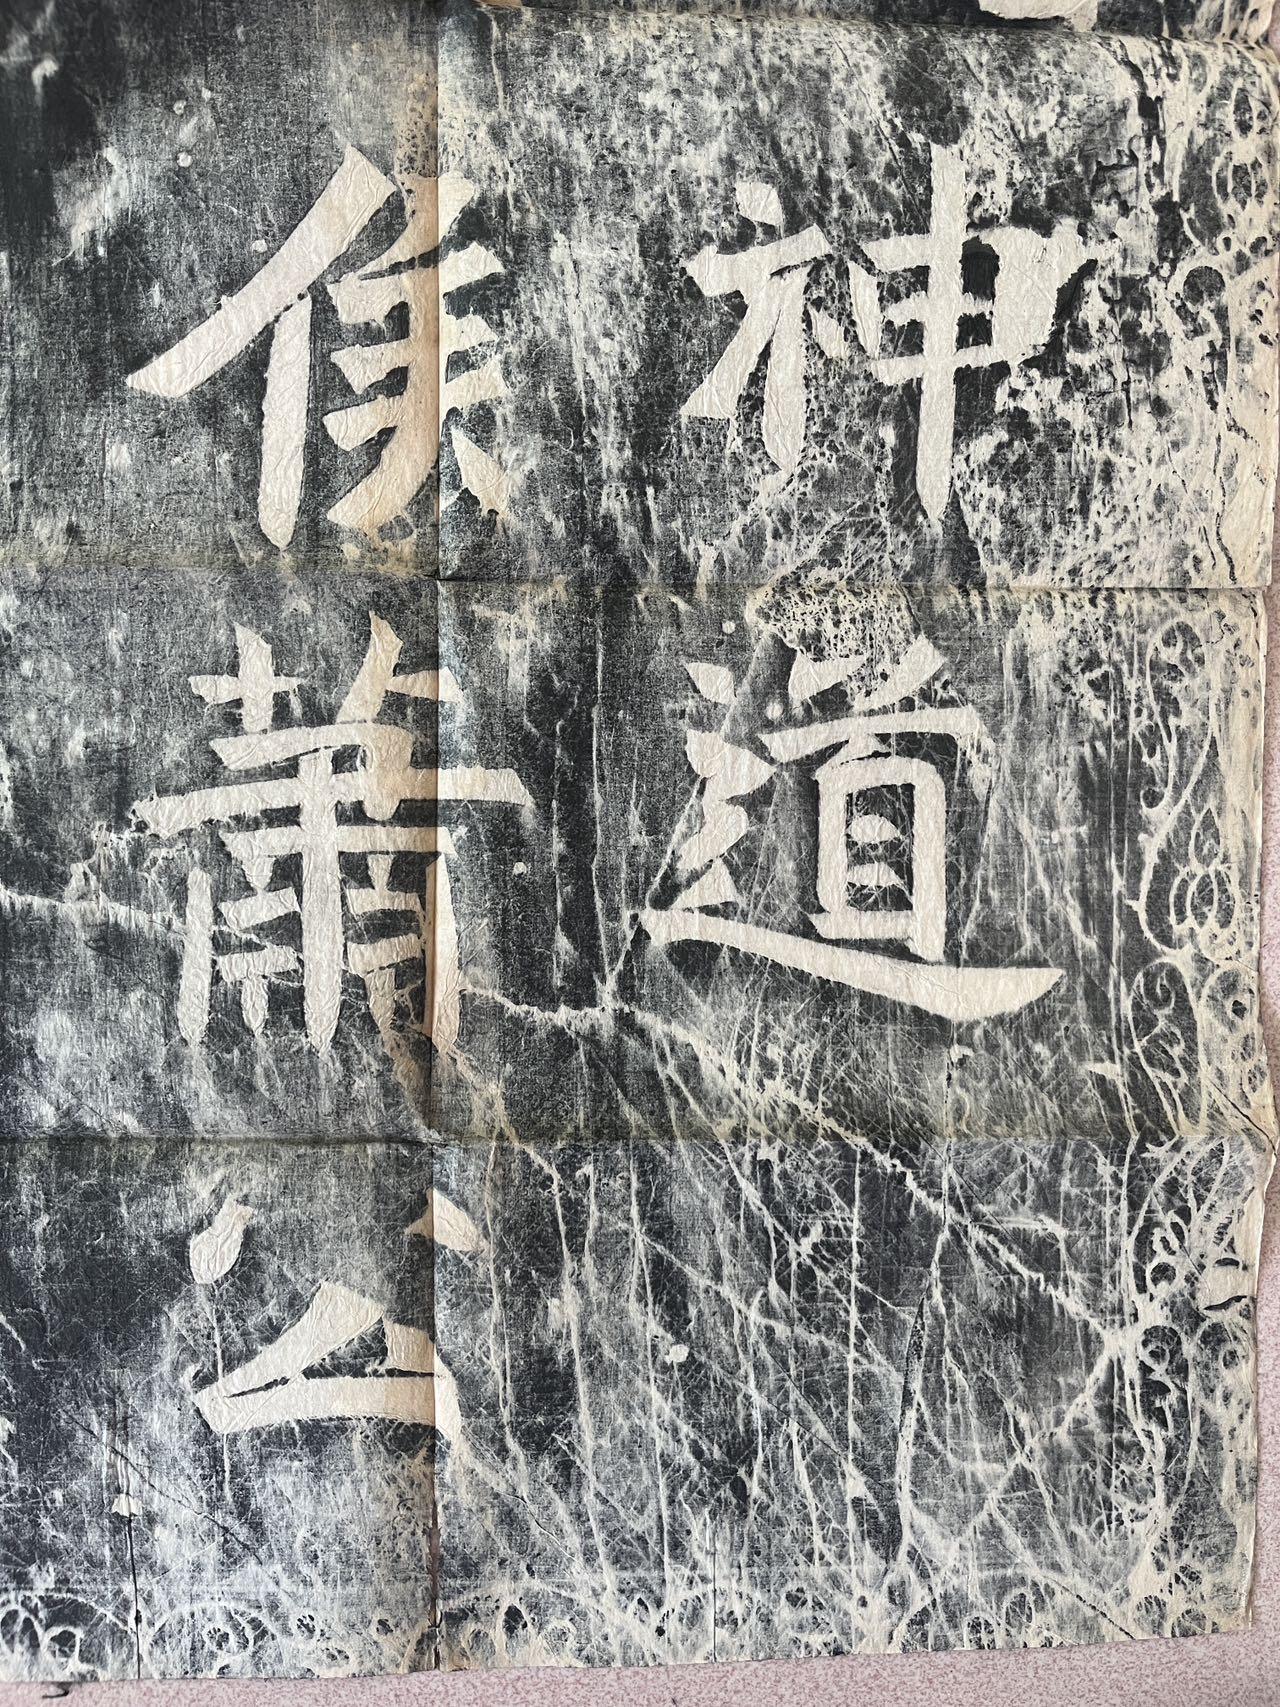 侯蕭公
神道